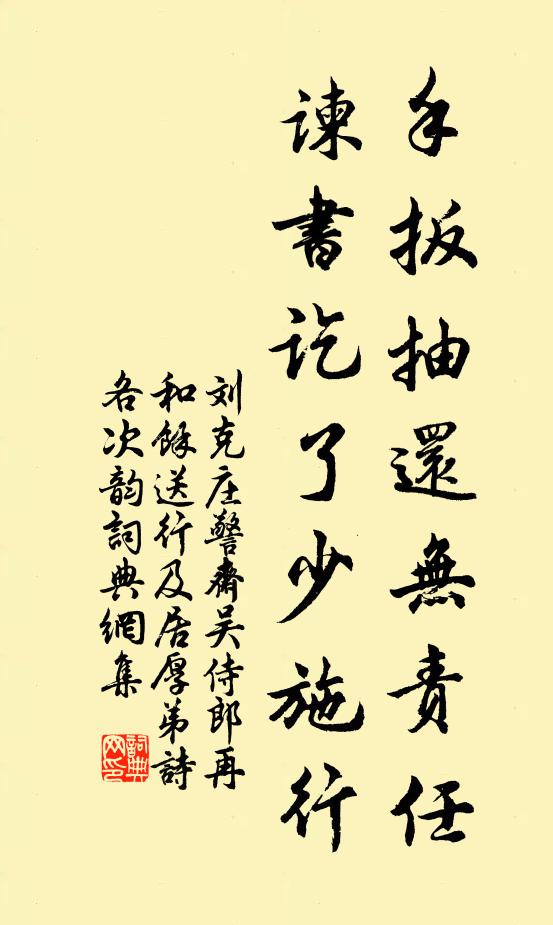 手扳抽還無責任
諫書訖了少施行
刘克庄警齋吴侍郎再
和餘送行及居厚弟詩
各次韵詞典網集
詞典
网印